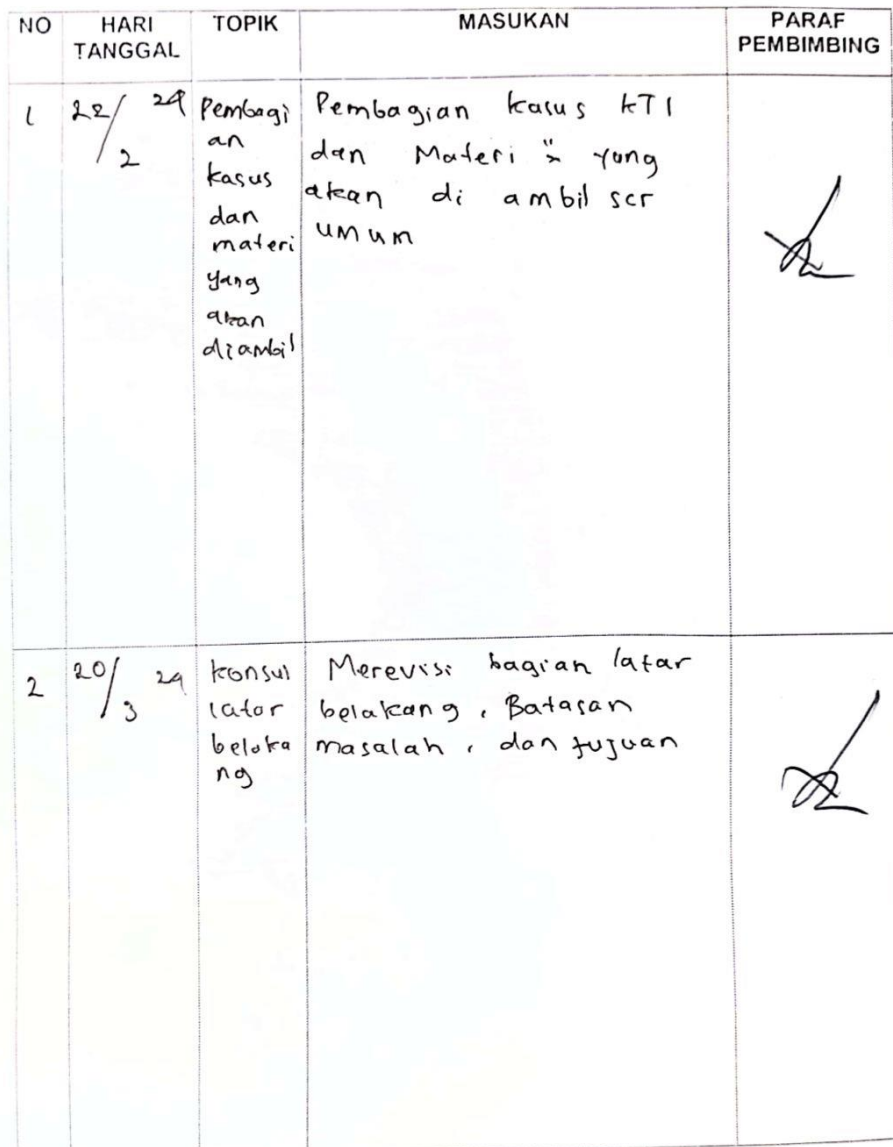 NO HARI TANGGAL TOPIK MASUKAN PARAF PEMBIMBING
1 22/2 24
Pembagi
an
kasus
dan
materi
yang
akan
diambil
Pembagian kasus KTI
dan Materi" yang
akan di ambil scr
umum
2 20/3 24
konsul
latar
belaka
ng
Merevisi bagian latar
belakang, Batasan
masalah, dan tujuan